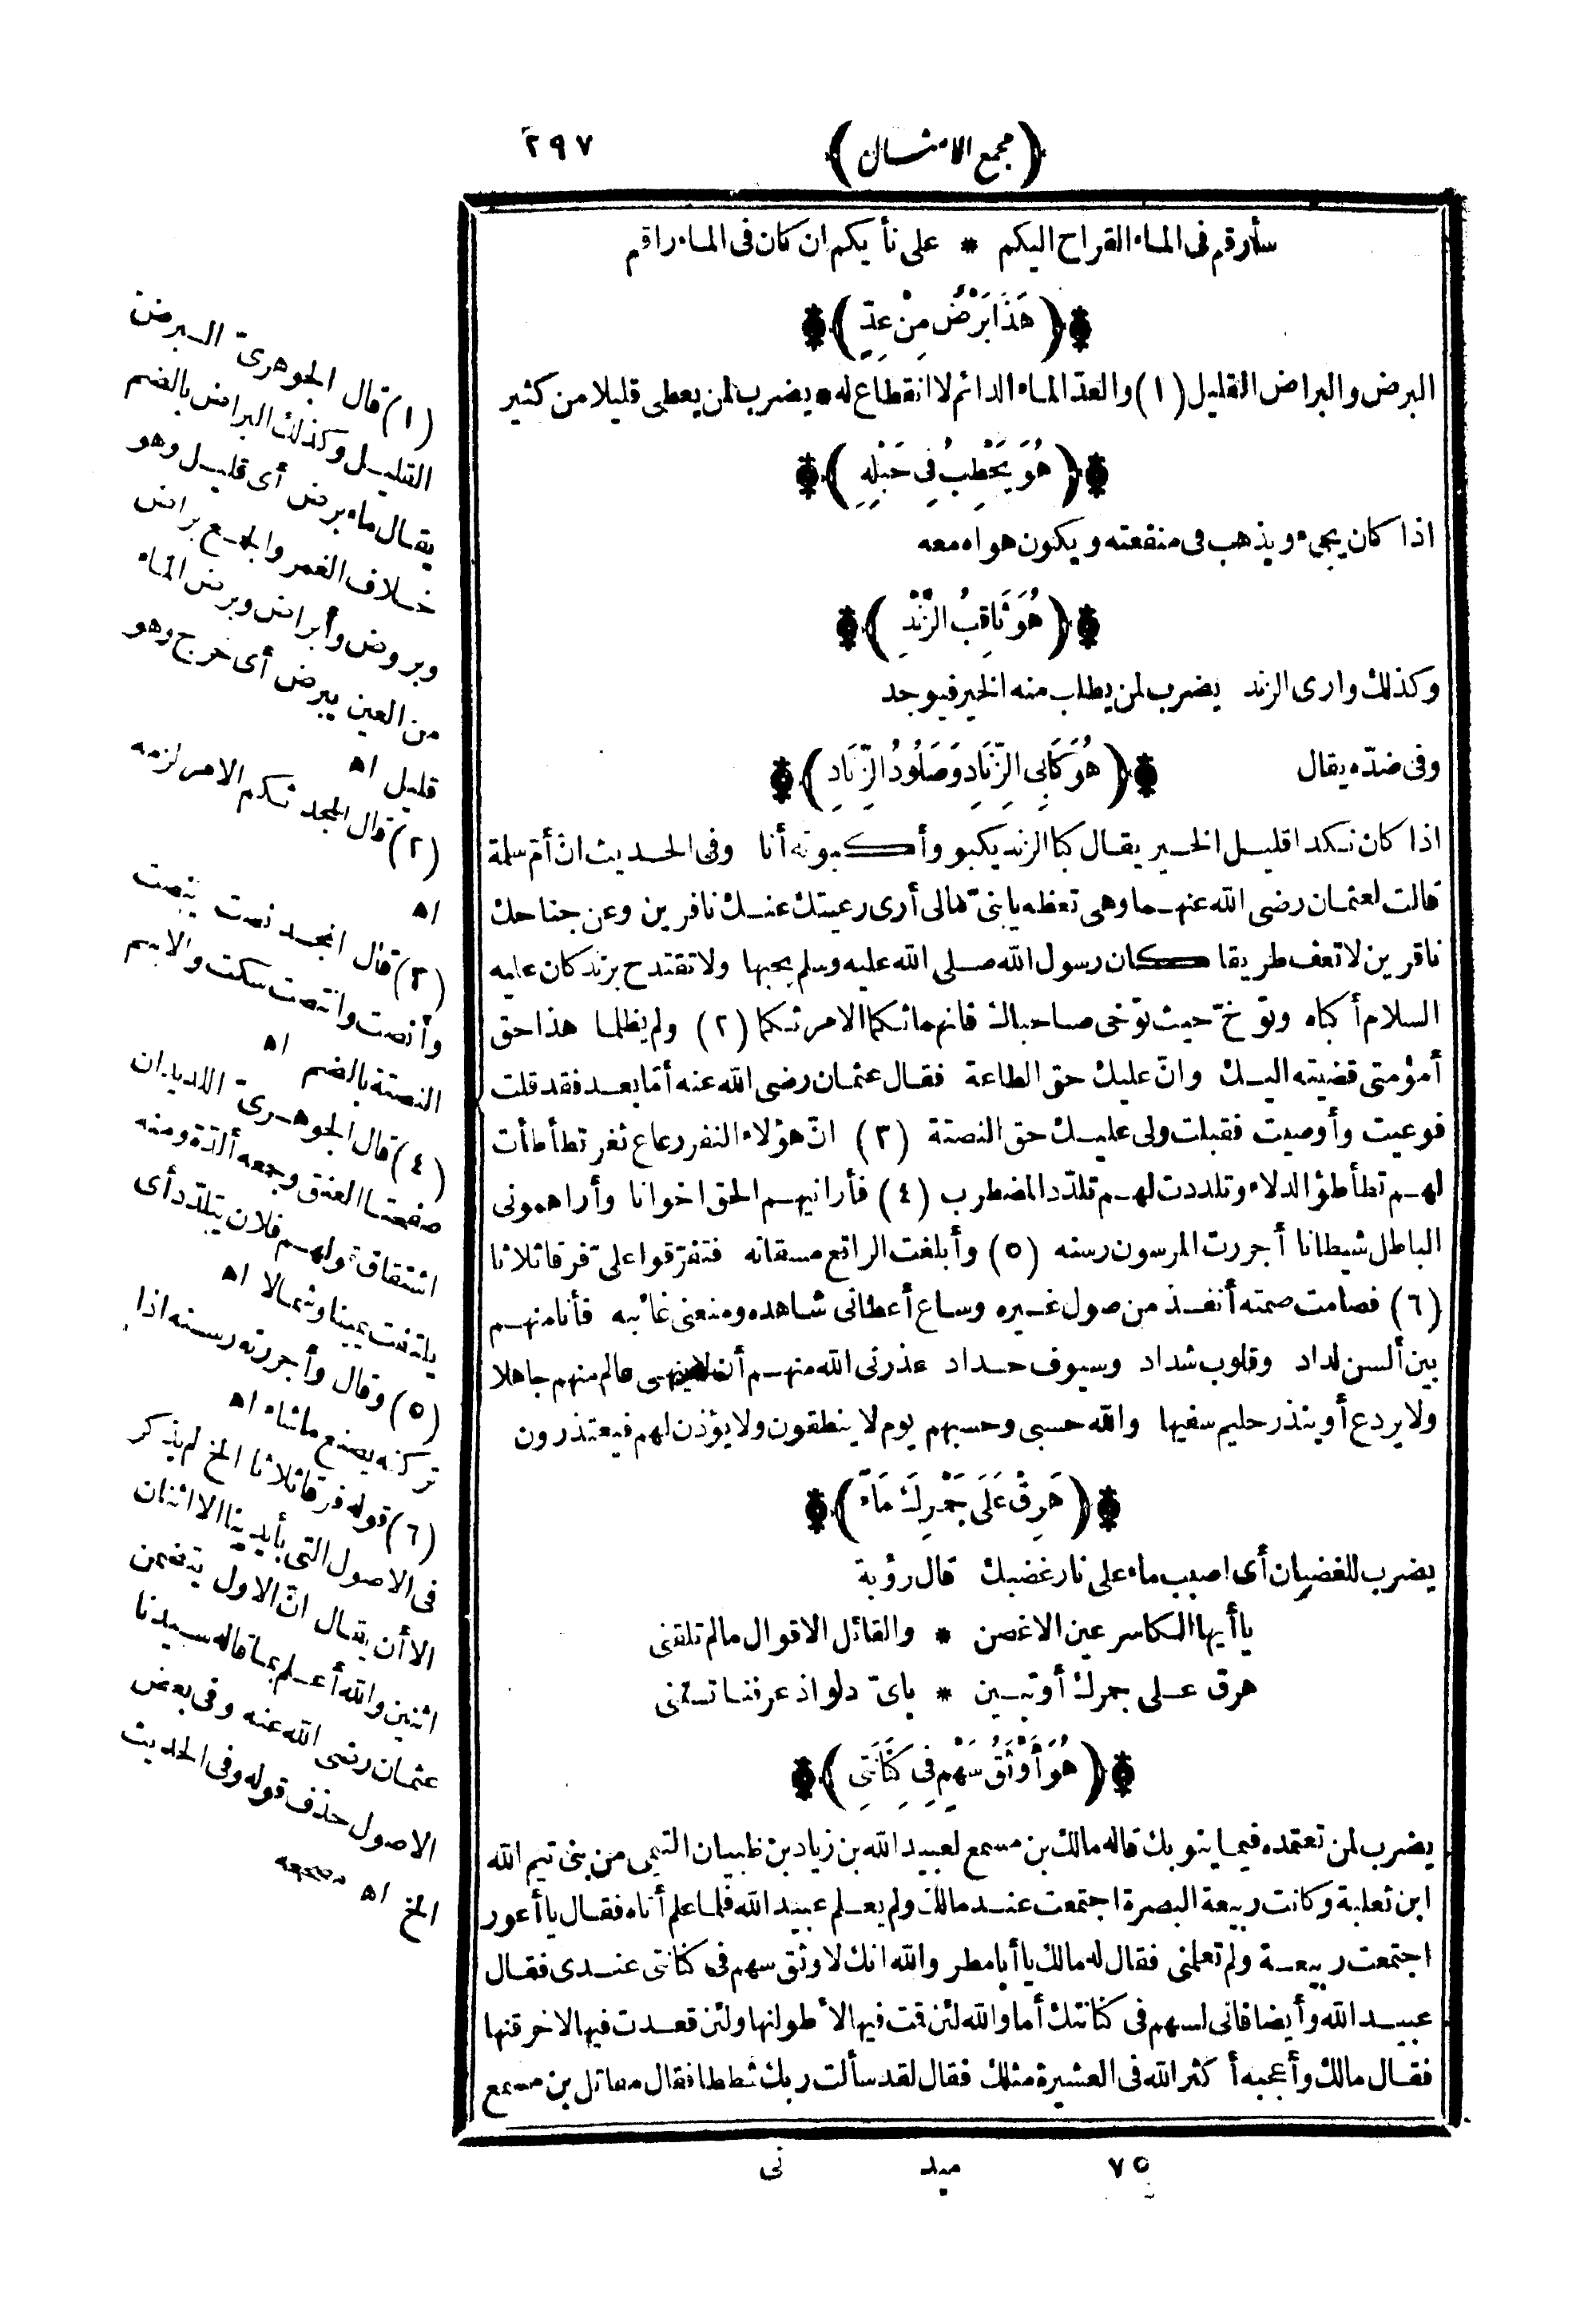 (مجمع الامثال) ٢٩٧
سأرقم فى الماء القراح اليكم * على نأيكم ان كان فى الماء راقم
(هَذَا بَرْضٌ مِنْ عِدٍّ)
البرض والبراض القليل (١) والعدّ الماء الدائم لا انقطاع له * يضرب لمن يعطى قليلا من كثير
(هُوَ يَحْطِبُ فِى حَبْلِهِ)
اذا كان يجىء ويذهب فى منفعته ويكون هواه معه
(هُوَ ثَاقِبُ الزَّنْدِ)
وكذلك وارى الزند يضرب لمن يطلب منه الخير فيوجد
وفى ضدّه يقال (هُوَ كَابِى الزِّنَادِ وَصَلُودُ الزِّنَادِ)
اذا كان نكدا قليل الخير يقال كبا الزند يكبو وأكبوته أنا وفى الحديث انّ أمّ سلمة
قالت لعثمان رضى الله عنهما وهى تعظه يا بنىّ مالى أرى رعيتك عنك نافرين وعن جناحك
ناقرين لا تعف طريقا كان رسول الله صلى الله عليه وسلم يحبها ولا تقتدح بزند كان عليه
السلام أكباه وتوخّ حيث توخى صاحباك فانهما ثكما الامر ثكما (٢) ولم يظلما هذا حق
أمؤمتى قضيته اليك وانّ عليك حق الطاعة فقال عثمان رضى الله عنه أمّا بعد فقد قلت
فوعيت وأوصيت فقبلت ولى عليك حق النصتة (٣) انّ هؤلاء النفر رعاع ثغر تطأطأت
لهم تطأطؤ الدلاء وتلددت لهم تلدّد المضطرب (٤) فأرانيهم الحق اخوانا وأراهمونى
الباطل شيطانا أجررت المرسون رسنه (٥) وأبلغت الراتع مسقاته فتفرّقوا علىّ فرقا ثلاثا
(٦) فصامت صمته أنفذ من صول غيره وساع أعطانى شاهده ومنعنى غائبه فأنا منهم
بين ألسن لداد وقلوب شداد وسيوف حداد عذرنى الله منهم أن لا ينهى عالم منهم جاهلا
ولا يردع أو ينذر حليم سفيها والله حسبى وحسبهم يوم لا ينطقون ولا يؤذن لهم فيعتذرون
(هَرِقْ عَلَى جَمْرِكَ مَاءً)
يضرب للغضبان أى اصبب ماء على نار غضبك قال رؤبة
يا أيها الكاسر عين الاغصن * والقائل الاقوال مالم تلقنى
هرق على جمرك أو تبين * باىّ دلو اذ عرفنا تستنى
(هُوَ أَوْثَقُ سَهْمٍ فِى كِنَانَتِى)
يضرب لمن تعتمده فيما ينوبك قاله مالك بن مسمع لعبيد الله بن زياد بن ظبيان التيمى من بنى تيم الله
ابن ثعلبة وكانت ربيعة البصرة اجتمعت عند مالك ولم يعلم عبيد الله فلما علم أتاه فقال يا أعور
اجتمعت ربيعة ولم تعلمنى فقال له مالك يا أبا مطر والله انك لاوثق سهم فى كنانتى عندى فقال
عبيد الله وأيضا فانى لسهم فى كنانتك أما والله لئن قمت فيها لأطولنها ولئن قعدت فيها لاخرقنها
فقال مالك وأعجبه أكثر الله فى العشيرة مثلك فقال لقد سألت ربك شططا فقال مقاتل بن مسمع
٧٥ ميد نى
(١) قال الجوهرىّ البرض
القليل وكذلك البراض بالضم
يقال ماء برض أى قليل وهو
خلاف الغمر والجمع براض
وبروض وأبراض وبرض الماء
من العين يبرض أى خرج وهو
قليل اه
(٢) قال المجد ثكم الامر لزمه
اه
(٣) قال المجد نصت ينصت
وأنصت وانتصت سكت والاسم
النصتة بالضم اه
(٤) قال الجوهرىّ اللديدان
صفحتا العنق وجمعه ألدّة ومنه
اشتقاق قولهم فلان يتلدّد أى
يلتفت يمينا وشمالا اه
(٥) وقال وأجررته رسنه اذا
تركته يصنع ما شاء اه
(٦) قوله فرقا ثلاثا الخ لم يذكر
فى الاصول التى بأيدينا الا اثنان
الا أن يقال انّ الاول يتضمن
اثنين والله أعلم بما قاله سيدنا
عثمان رضى الله عنه وفى بعض
الاصول حذف قوله وفى الحديث
الخ اه مصححه